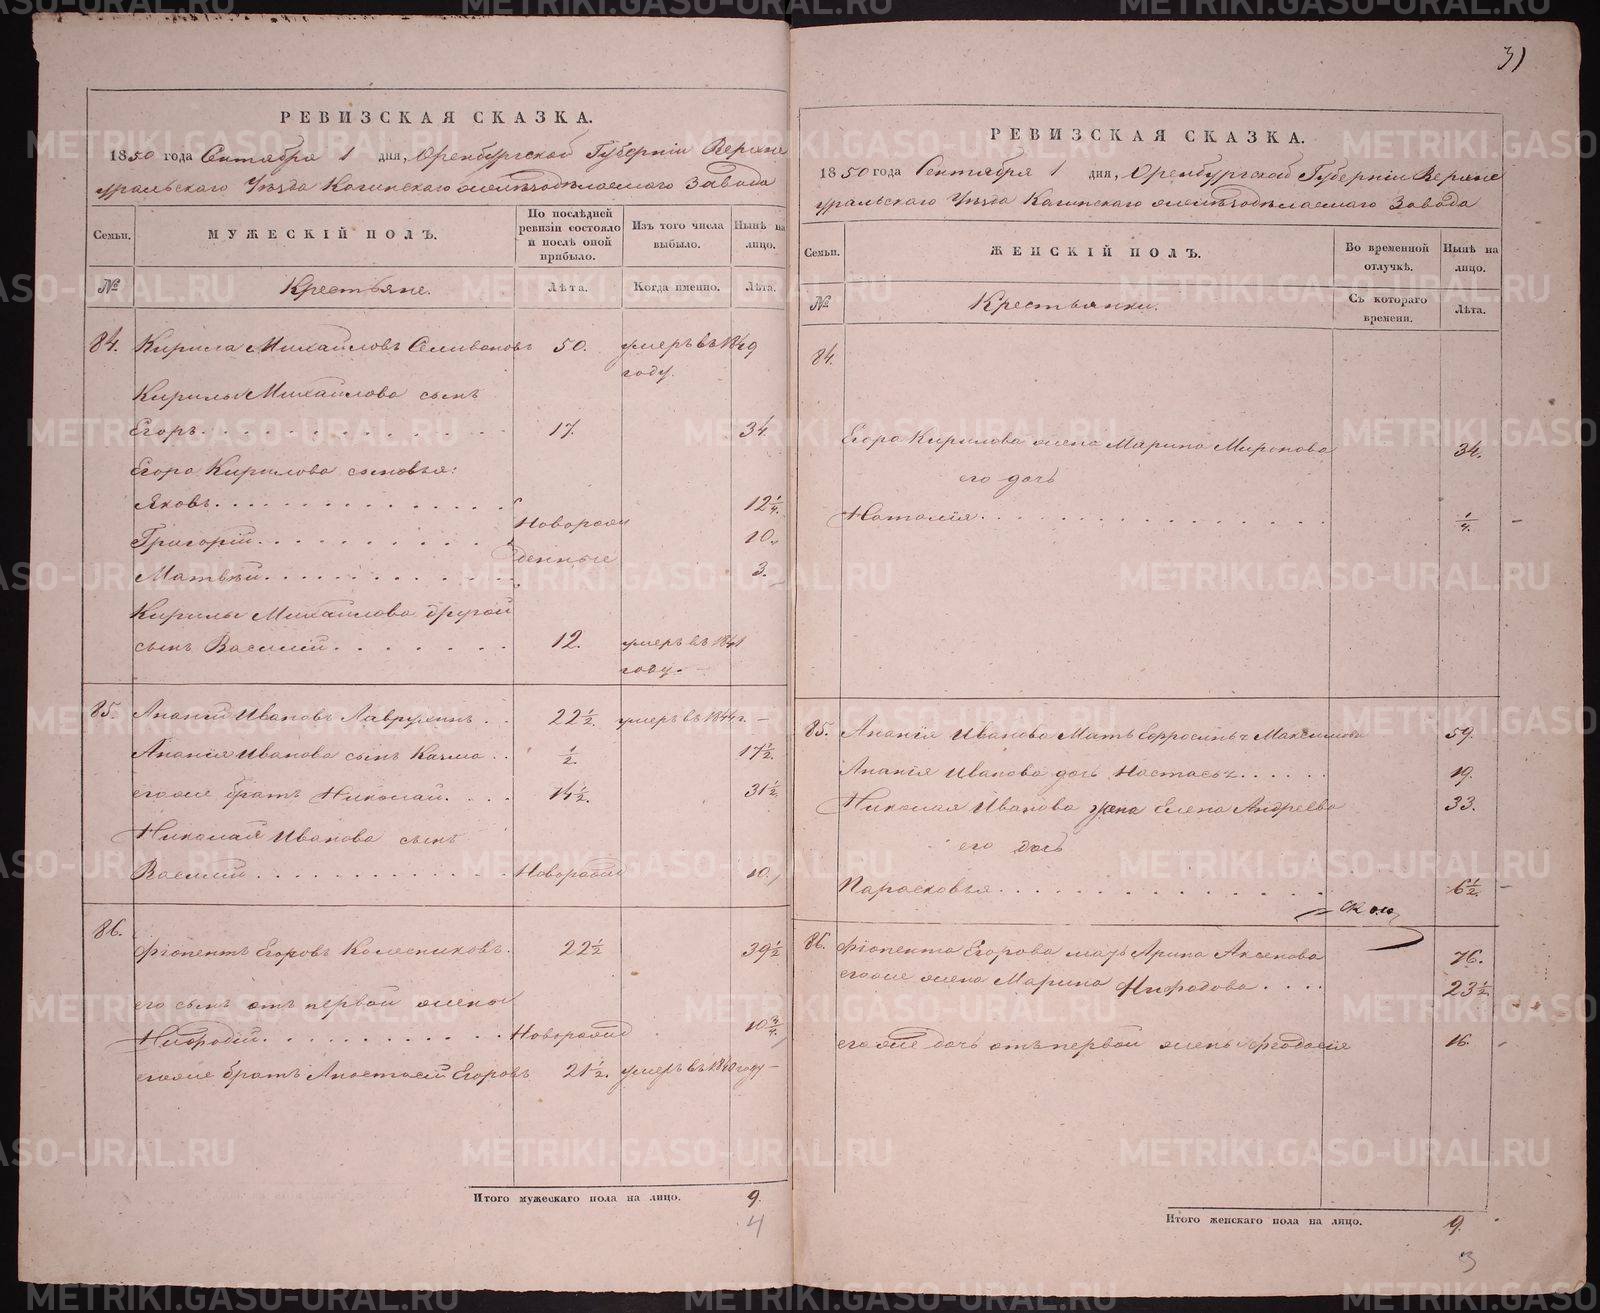 РЕВИЗСКАЯ СКАЗКА.
1850 года Сентября 1 дня, Оренбургской Губерніи Верхне
уральскаго Уѣзда Кагинскаго желѣзодѣлаемаго Завода
Семьи.
МУЖЕСКІЙ ПОЛЪ.
По послѣдней ревизіи состояло и послѣ оной прибыло.
Изъ того числа выбыло.
Нынѣ на лицо.
№
Крестьяне.
Лѣта.
Когда именно.
Лѣта.
84. Кирила Михайловъ Селивановъ 50. умеръ въ 1849
году.
Кирилы Михайлова сынъ
Егоръ 17. 34.
Егора Кирилова сыновья:
Яковъ 12 1/4.
Новорож
Григорій 10.
денные
Матвѣй 3.
Кирилы Михайлова другой
сынъ Василій 12. умеръ въ 1841
году.
85. Ананій Ивановъ Лаврухинъ 22 1/2. умеръ въ 1844 г.
Ананія Иванова сынъ Казма 1/2. 17 1/2.
егоже братъ Николай 14 1/2. 31 1/2.
Николая Иванова сынъ
Василій Новорожд 10.
86. Фіопентъ Егоровъ Колесниковъ 22 1/2 39 1/2
его сынъ отъ первой жены
Новорожд 10 3/4.
егоже братъ Анастасей Егоровъ 21 1/2. умеръ въ 1840 году
Итого мужескаго пола на лицо. 9.
4
31
РЕВИЗСКАЯ СКАЗКА.
1850 года Сентября 1 дня, Оренбургской Губерніи Верхне
уральскаго Уѣзда Кагинскаго желѣзодѣлаемаго Завода
Семьи.
ЖЕНСКІЙ ПОЛЪ.
Во временной отлучкѣ.
Нынѣ на лицо.
№
Крестьянки.
Съ котораго времени.
Лѣта.
84.
Егора Кирилова жена Марина Миронова 34.
его дочь
Наталія 1/4.
85. Ананія Иванова Мать Ефросинья Максимова 59.
Ананія Иванова дочь Настасья 19.
Николая Иванова жена Елена Андреева 33.
его дочь
Парасковья 6 1/2.
86. Фіопента Егорова мать Арина Аксенова 76.
егоже жена Марина Нифодова 23 1/2.
егоже дочь отъ первой жены Феодосія 16.
Итого женскаго пола на лицо. 9.
3
METRIKI.GASO-URAL.RU